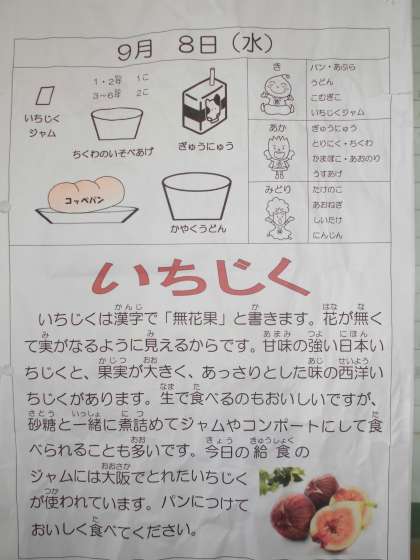 9月 8日(水)
いちじく
ジャム
1・2年 1こ
3~6年 2こ
ちくわのいそべあげ
ぎゅうにゅう
コッペパン
かやくうどん
き
パン・あぶら
うどん
こむぎこ
いちじくジャム
あか
ぎゅうにゅう
とりにく・ちくわ
かまぼこ・あおのり
うすあげ
みどり
たけのこ
あおねぎ
しいたけ
にんじん
いちじく
かんじ か はな な
いちじくは漢字で「無花果」と書きます。花が無く
み み あまみ つよ にほん
て実がなるように見えるからです。甘味の強い日本い
かじつ おお あじ せいよう
ちじくと、果実が大きく、あっさりとした味の西洋い
なま た
ちじくがあります。生で食べるのもおいしいですが、
さとう いっしょ に つ た
砂糖と一緒に煮詰めてジャムやコンポートにして食
おお きょう きゅうしょく
べられることも多いです。今日の給食の
おおさか
ジャムには大阪でとれたいちじく
つか
が使われています。パンにつけて
た
おいしく食べてください。